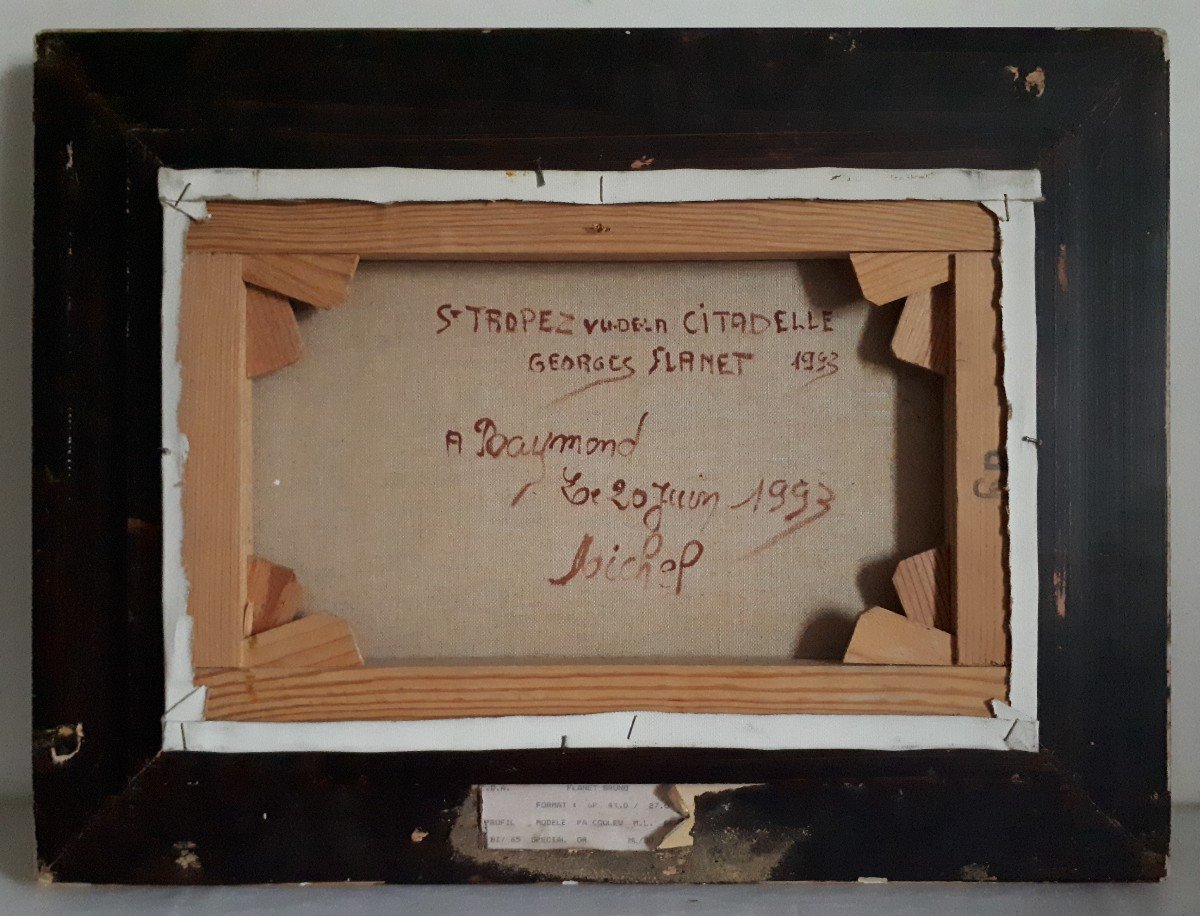 St TROPEZ VU.DE.LA CITADELLE
GEORGES FLANET 1993
A Raymond
Le 20 Juin 1993
Michel
6P
.D.A. FLANET BRUNO
FORMAT : 6P 41.0 / 27.0
PROFIL MODELE PA COULEU M.L.
BI/ 65 SPECIAL OR ML/